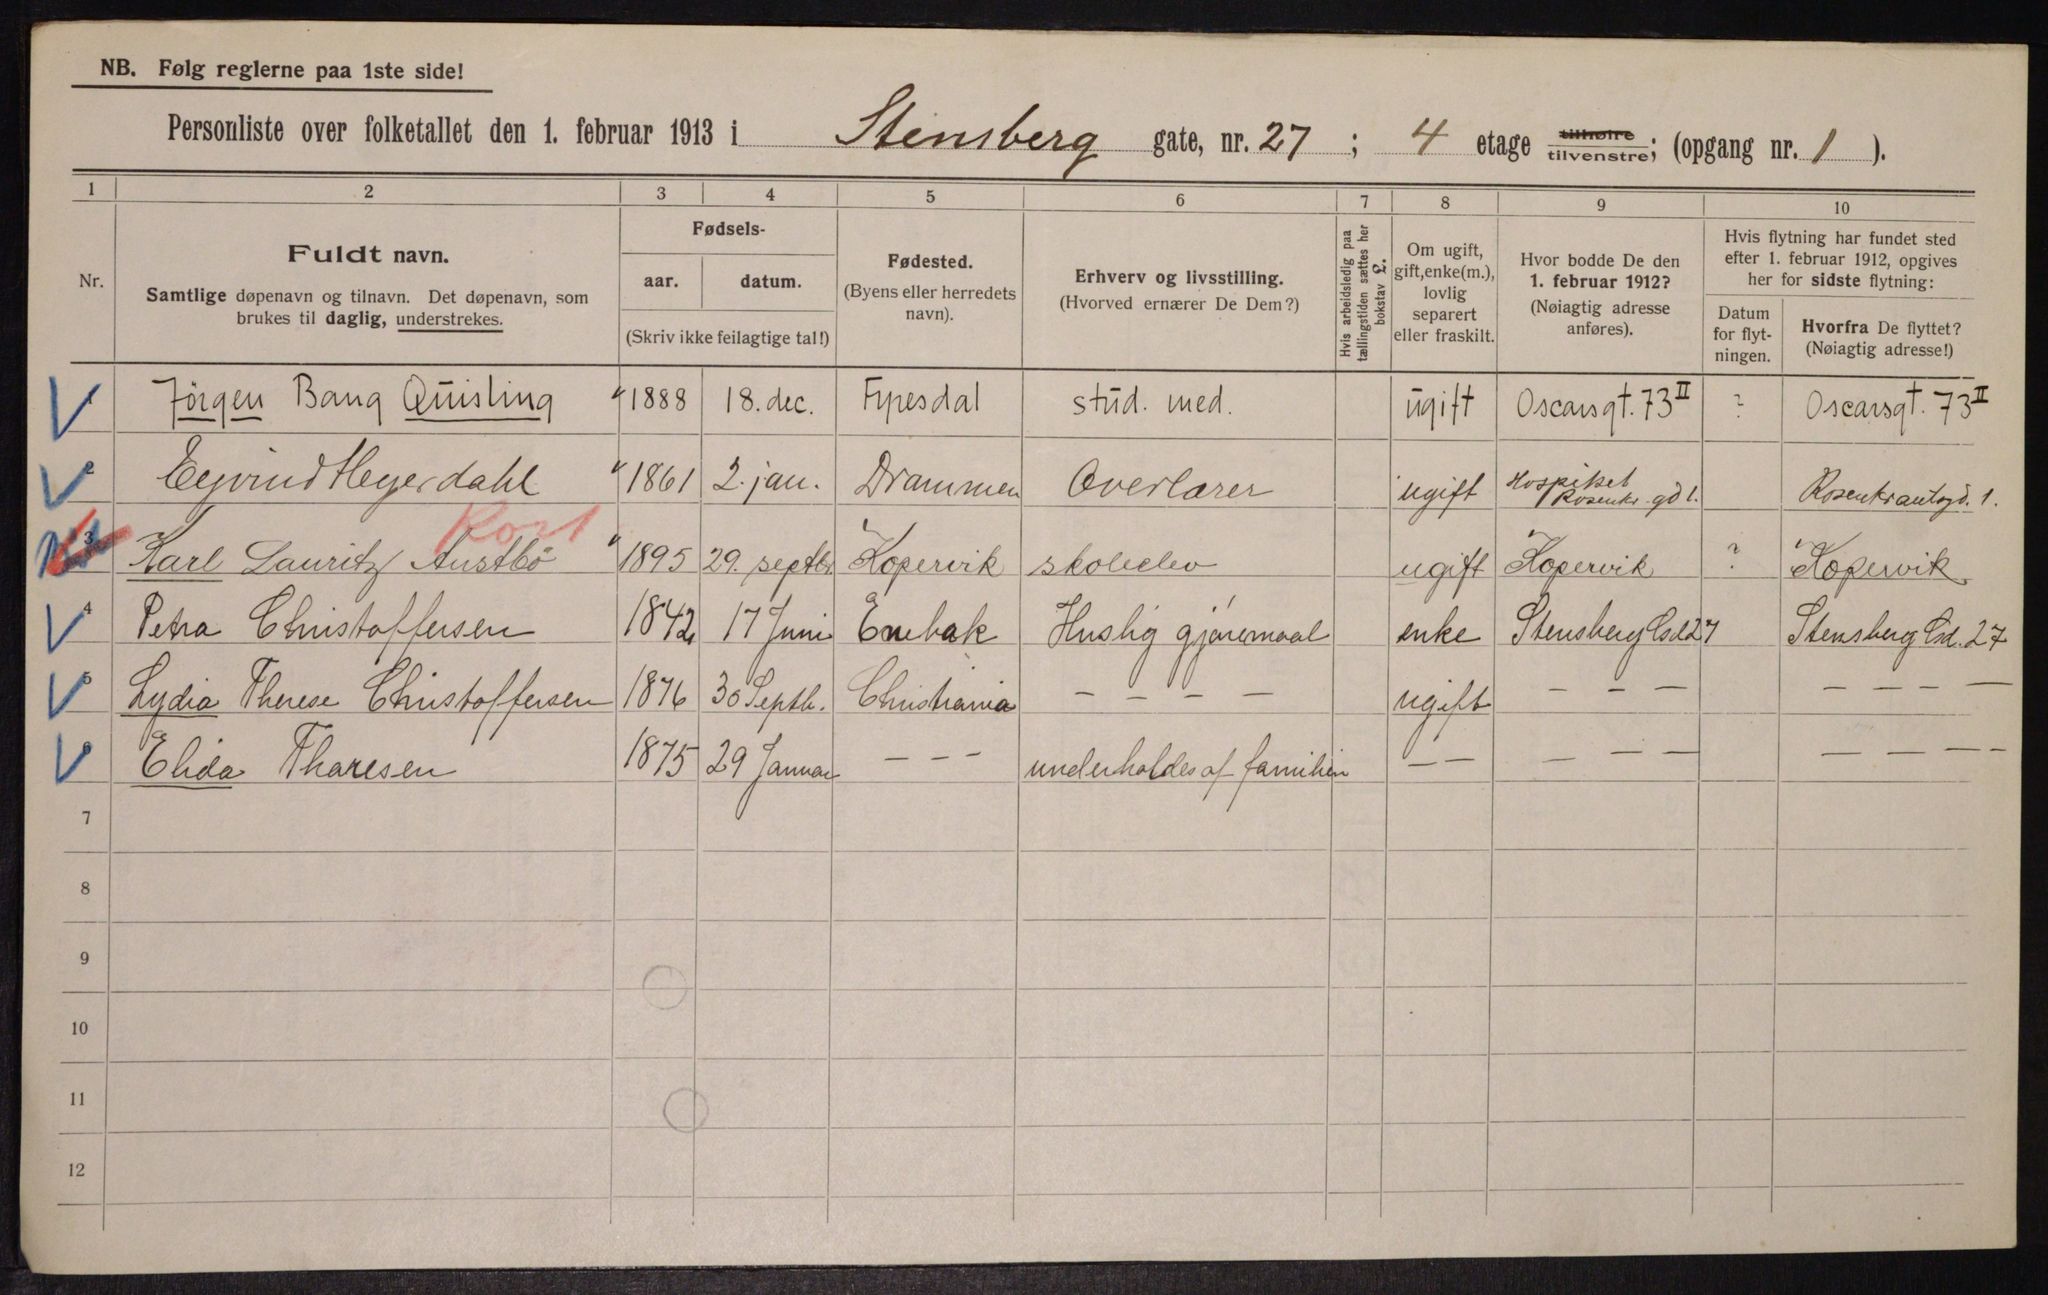 NB. Følg reglerne paa 1ste side!
Personliste over folketallet den 1. februar 1913 i Stensberg gate, nr. 27 ; 4 etage tilhøire tilvenstre; (opgang nr. 1 ).
1 2 3 4 5 6 7 8 9 10
Nr.
Fuldt navn.
Samtlige døpenavn og tilnavn. Det døpenavn, som
brukes til daglig, understrekes.
Fødsels-
aar. datum.
(Skriv ikke feilagtige tal!)
Fødested.
(Byens eller herredets
navn).
Erhverv og livsstilling.
(Hvorved ernærer De Dem?)
Hvis arbeidsledig paa
tællingstiden sættes her
bokstav L.
Om ugift,
gift, enke(m.),
lovlig
separert
eller fraskilt.
Hvor bodde De den
1. februar 1912?
(Nøiagtig adresse
anføres).
Hvis flytning har fundet sted
efter 1. februar 1912, opgives
her for sidste flytning:
Datum
for flyt-
ningen.
Hvorfra De flyttet?
(Nøiagtig adresse!)
1 Jörgen Bang Quisling 1888 18. dec. Fyresdal stud. med. ugift Oscarsgt. 73 II ? Oscarsgt. 73 II
2 Eyvind Heyerdahl 1861 2. jan. Drammen Overlærer ugift Hospitset Rosenkr. gd 1. Rosenkrantzgd. 1.
Kort
3 Karl Lauritz Austbö 1895 29. septbr. Kopervik skoleelev ugift Kopervik ? Kopervik
4 Petra Christoffersen 1842 17 Juni Enebak Huslig gjøremaal enke Stensberg Gd 27 Stensberg Gd. 27
5 Lydia Therese Christoffersen 1876 30 Septb. Christiania — — — — ugift — — — — — — —
6 Elida Thoresen 1875 29 Januar — — — underholdes af familien — — — — — — — — —
7
8
9
10
11
12